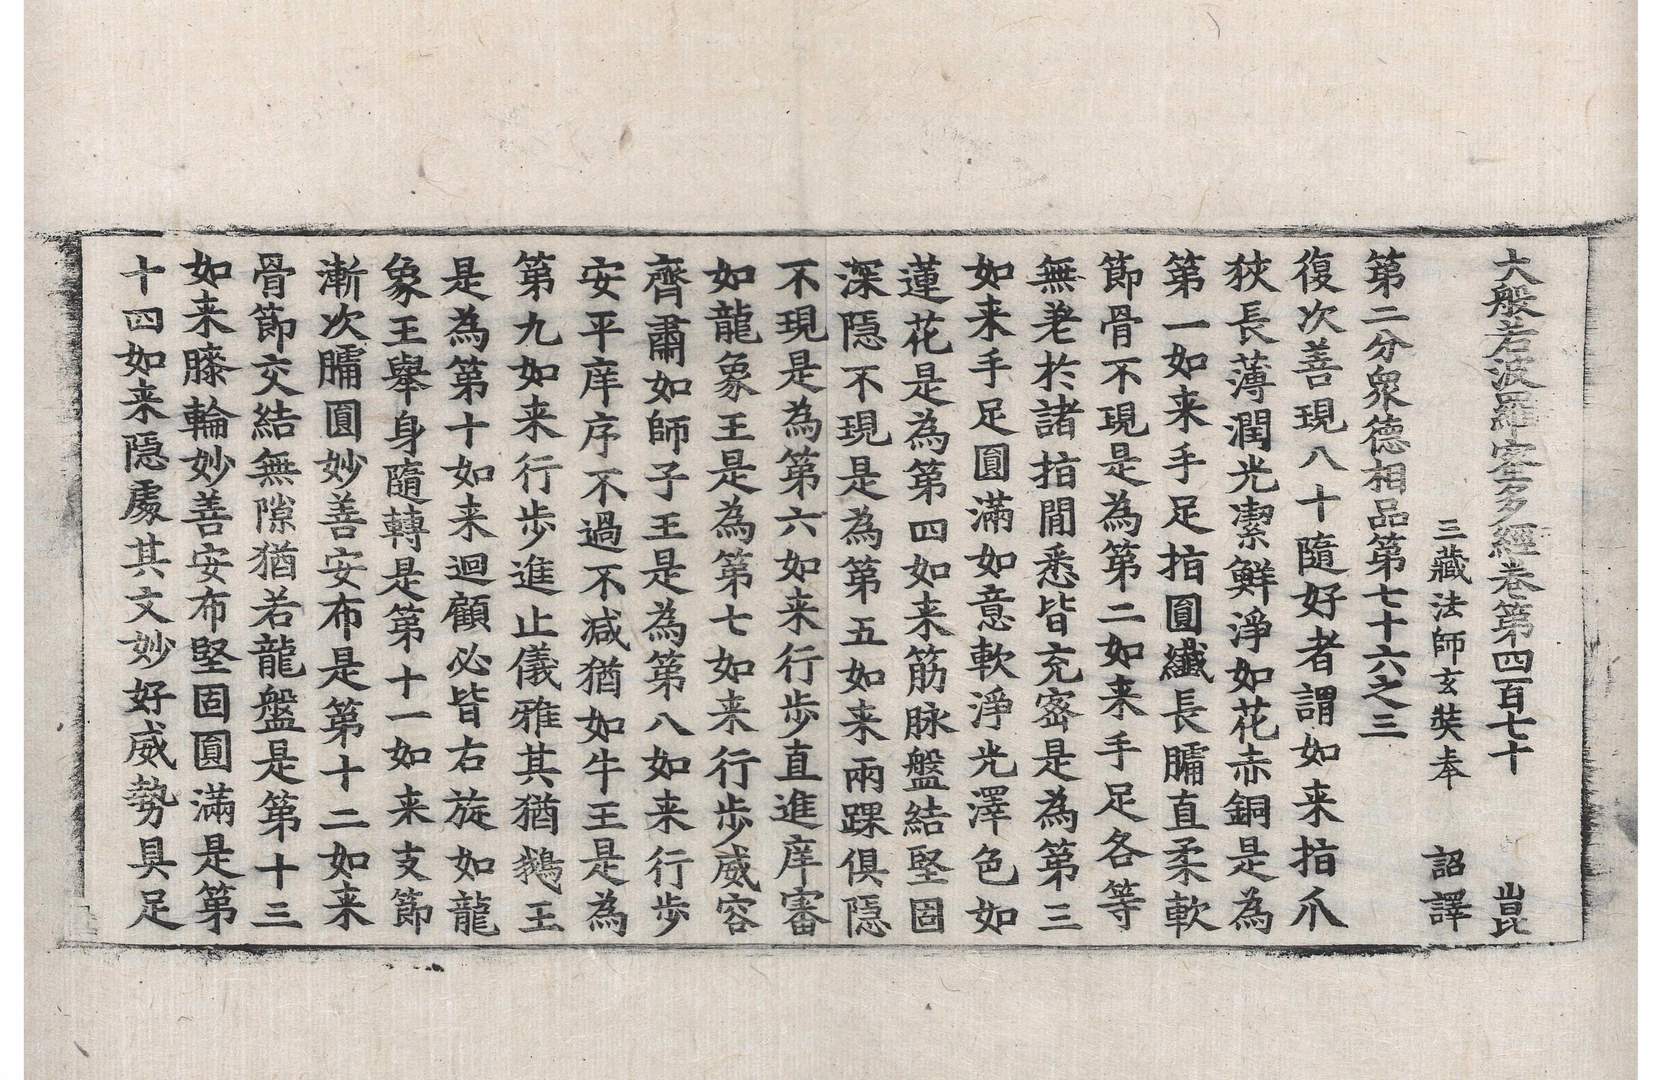 大般若波羅蜜多經卷第四百七十 崑
三藏法師玄奘奉 詔譯
第二分眾德相品第七十六之三
復次善現八十隨好者謂如来指爪
狹長薄潤光潔鮮淨如花赤銅是為
第一如来手足指圓纖長𦟛直柔軟
節骨不現是為第二如来手足各等
無差於諸指閒悉皆充密是為第三
如来手足圓滿如意軟淨光澤色如
蓮花是為第四如来筋脉盤結堅固
深隱不現是為第五如来兩踝俱隱
不現是為第六如来行步直進庠審
如龍象王是為第七如来行步威容
齊肅如師子王是為第八如来行步
安平庠序不過不減猶如牛王是為
第九如来行步進止儀雅其猶鵝王
是為第十如来迴顧必皆右旋如龍
象王舉身隨轉是第十一如来支節
漸次𦟛圓妙善安布是第十二如来
骨節交結無隙猶若龍盤是第十三
如来膝輪妙善安布堅固圓滿是第
十四如来隱處其文妙好威勢具足